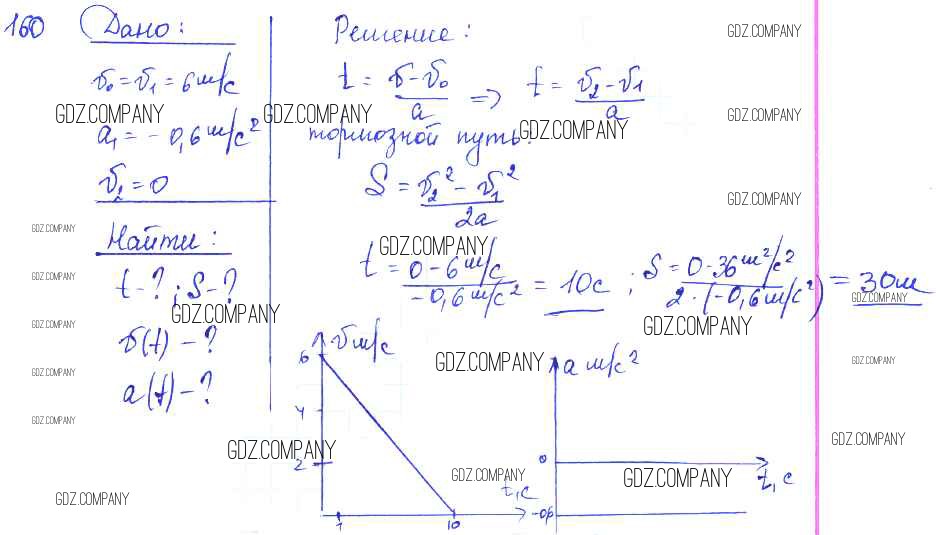 160 Дано:
v₀ = v₁ = 6 м/с
a₁ = - 0,6 м/с²
v₂ = 0
Найти:
t - ? ; S - ?
v(t) - ?
a(t) - ?
Решение:
t = (v - v₀)/a => t = (v₂ - v₁)/a
тормозной путь:
S = (v₂² - v₁²)/2a
t = (0 - 6 м/с)/(-0,6 м/с²) = 10 с ; S = (0 - 36 м²/с²)/(2 · (-0,6 м/с²)) = 30 м
v м/с
6
4
2
1
10
t, с
a м/с²
0
t, с
-0,6
GDZ.COMPANY
GDZ.COMPANY
GDZ.COMPANY
GDZ.COMPANY
GDZ.COMPANY
GDZ.COMPANY
GDZ.COMPANY
GDZ.COMPANY
GDZ.COMPANY
GDZ.COMPANY
GDZ.COMPANY
GDZ.COMPANY
GDZ.COMPANY
GDZ.COMPANY
GDZ.COMPANY
GDZ.COMPANY
GDZ.COMPANY
GDZ.COMPANY
GDZ.COMPANY
GDZ.COMPANY
GDZ.COMPANY
GDZ.COMPANY